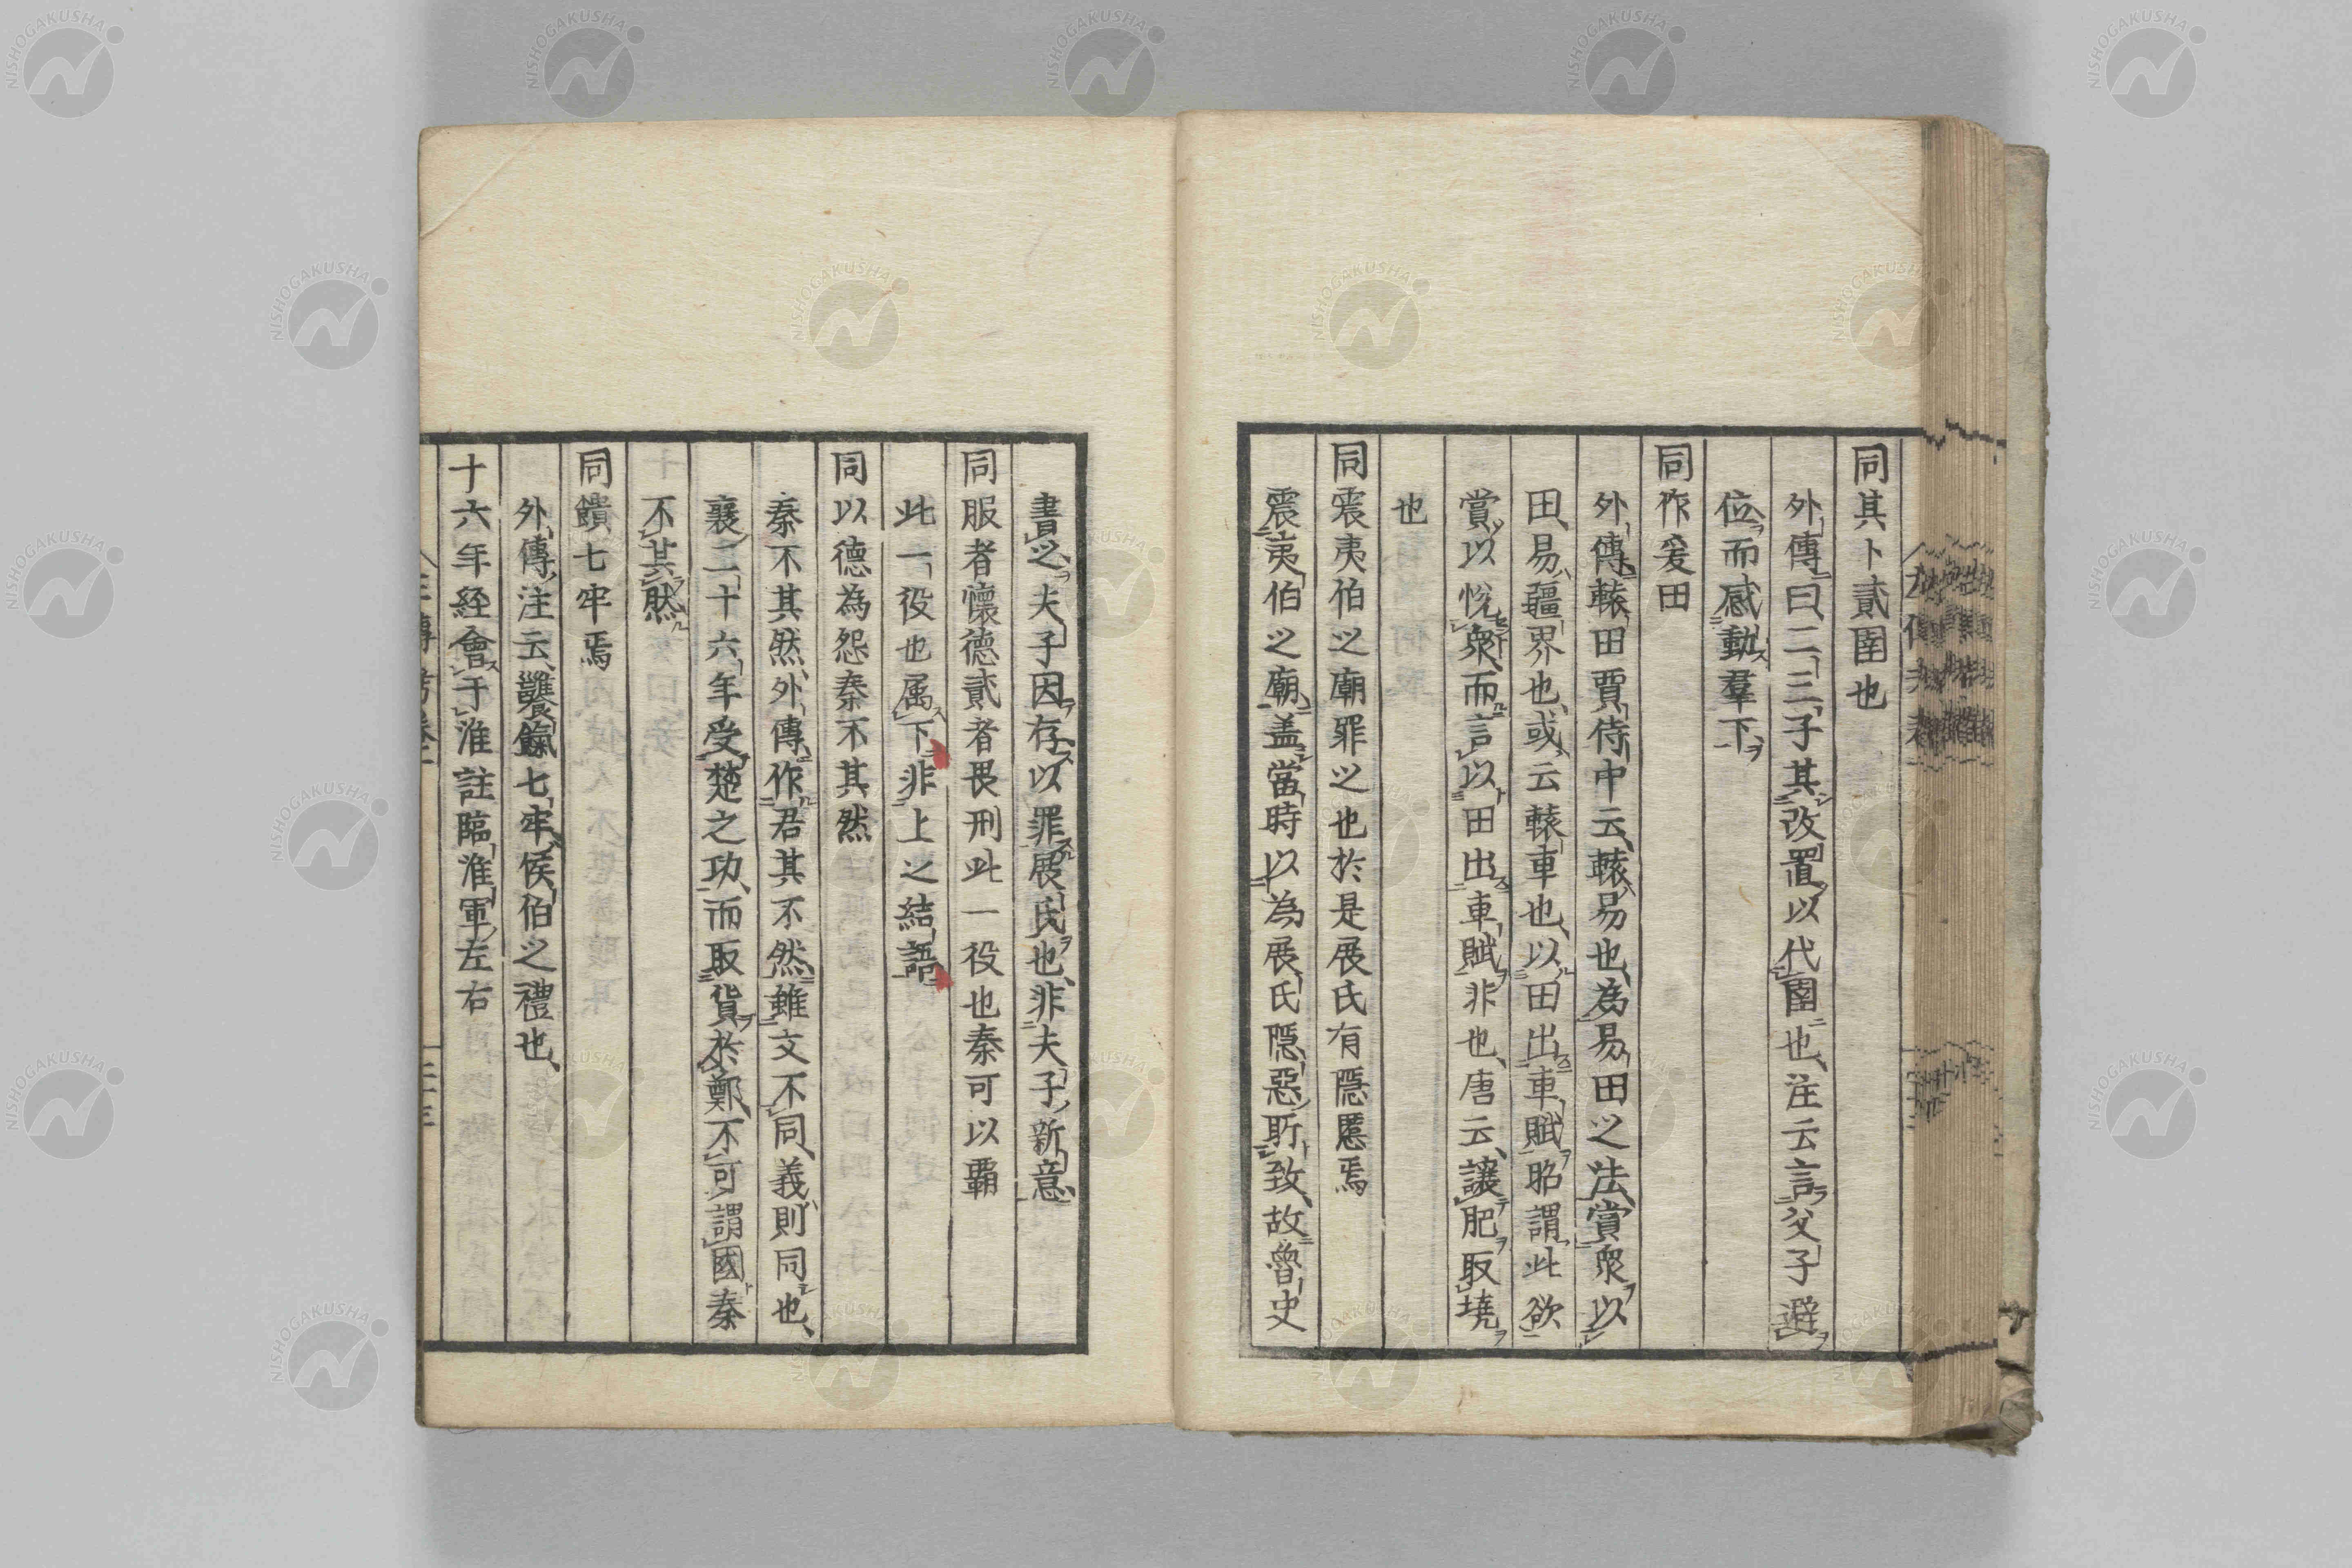 同其卜貳圉也
外傳曰二三子其改置以代圉也注云言父子避
位而感動羣下
同作爰田
外傳轅田賈侍中云轅易也為易田之法賞衆以
田易疆界也或云轅車也以田出車賦昭謂此欲
賞以悅衆而言以田出車賦非也唐云讓肥取墝
也
同震夷伯之廟罪之也於是展氏有隱慝焉
震夷伯之廟盖當時以為展氏隱惡所致故魯史
書之夫子因存以罪展氏也非夫子新意
同服者懷德貳者畏刑此一役也秦可以覇
此一役也属下非上之結語
同以德為怨秦不其然
秦不其然外傳作君其不然雖文不同義則同也
襄二十六年受楚之功而取貨於鄭不可謂國秦
不其然
同饋七牢焉
外傳注云饔餼七牢侯伯之禮也
十六年経會于淮註臨淮軍左右
NISHOGAKUSHA